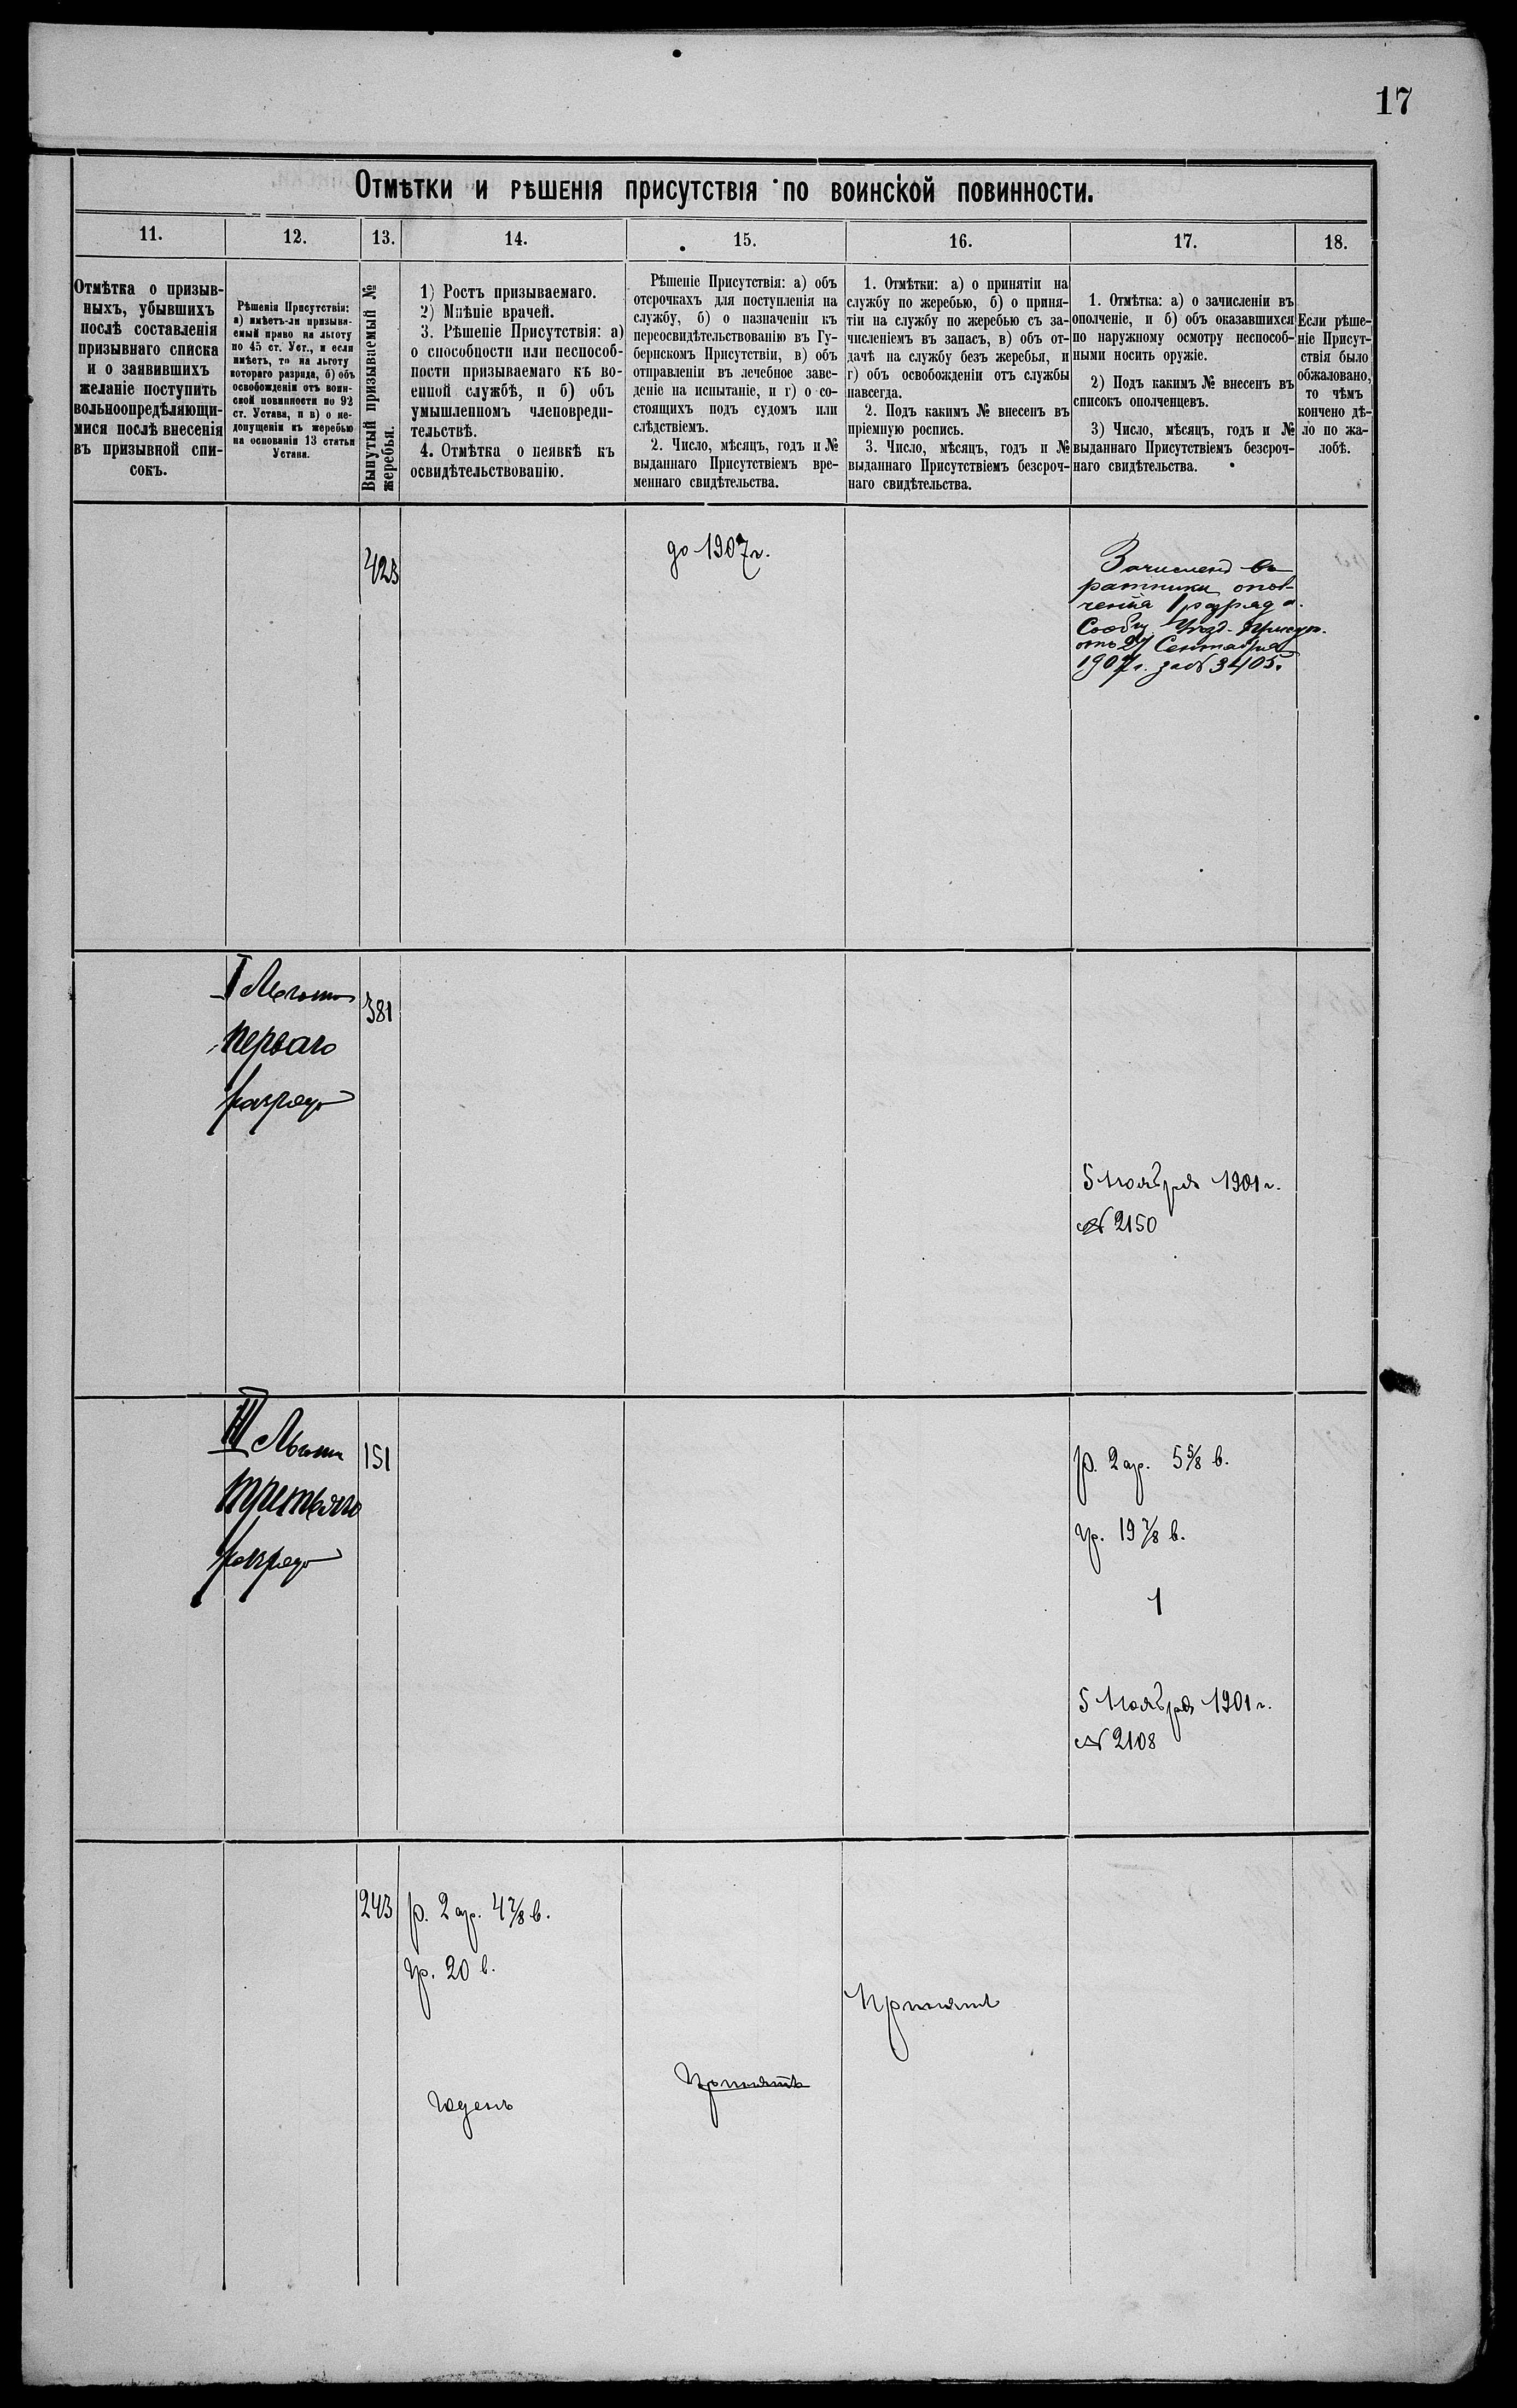 17
Отмѣтки и рѣшенія присутствія по воинской повинности.
11.
12.
13.
14.
15.
16.
17.
18.
Отмѣтка о призыв-
ныхъ, убывшихъ
послѣ составленія
призывнаго списка
и о заявившихъ
желаніе поступить
вольноопредѣляющи-
мися послѣ внесенія
въ призывной спи-
сокъ.
Рѣшенія Присутствія:
а) имѣетъ-ли призыва-
емый право на льготу
по 45 ст. Уст., и если
имѣетъ, то на льготу
котораго разряда, б) объ
освобожденіи отъ воин-
ской повинности по 92
ст. Устава, и в) о не-
допущеніи къ жеребью
на основаніи 13 статьи
Устава.
Вынутый призываемый №
жеребья.
1) Ростъ призываемаго.
2) Мнѣніе врачей.
3. Рѣшеніе Присутствія: а)
о способности или неспособ-
ности призываемаго къ во-
енной службѣ, и б) объ
умышленномъ членовреди-
тельствѣ.
4. Отмѣтка о неявкѣ къ
освидѣтельствованію.
Рѣшеніе Присутствія: а) объ
отсрочкахъ для поступленія на
службу, б) о назначеніи къ
переосвидѣтельствованію въ Гу-
бернскомъ Присутствіи, в) объ
отправленіи въ лечебное заве-
деніе на испытаніе, и г) о со-
стоящихъ подъ судомъ или
слѣдствіемъ.
2. Число, мѣсяцъ, годъ и №
выданнаго Присутствіемъ вре-
меннаго свидѣтельства.
1. Отмѣтки: а) о принятіи на
службу по жеребью, б) о приня-
тіи на службу по жеребью съ за-
численіемъ въ запасъ, в) объ от-
дачѣ на службу безъ жеребья, и
г) объ освобожденіи отъ службы
навсегда.
2. Подъ какимъ № внесенъ въ
пріемную роспись.
3. Число, мѣсяцъ, годъ и №
выданнаго Присутствіемъ безсроч-
наго свидѣтельства.
1. Отмѣтка: а) о зачисленіи въ
ополченіе, и б) объ оказавшихся
по наружному осмотру неспособ-
ными носить оружіе.
2) Подъ какимъ № внесенъ въ
списокъ ополченцевъ.
3) Число, мѣсяцъ, годъ и №
выданнаго Присутствіемъ безсроч-
наго свидѣтельства.
Если рѣше-
ніе Присут-
ствія было
обжаловано,
то чѣмъ
кончено дѣ-
ло по жа-
лобѣ.
423
до 1907 г.
Зачисленъ въ
ратники опол-
ченія 1 разряда.
Сообщ. Уѣзд. Присут.
отъ 27 Сентября
1907 г. за № 3405.
I Льгота
перваго
разряда
381
5 Ноября 1901 г.
№ 2150
III Льгота
третьяго
разряда
151
р. 2 ар. 5 5/8 в.
гр. 19 7/8 в.
1
5 Ноября 1901 г.
№ 2108
243
р. 2 ар. 4 7/8 в.
гр. 20 в.
Принятъ
Принятъ
Годенъ